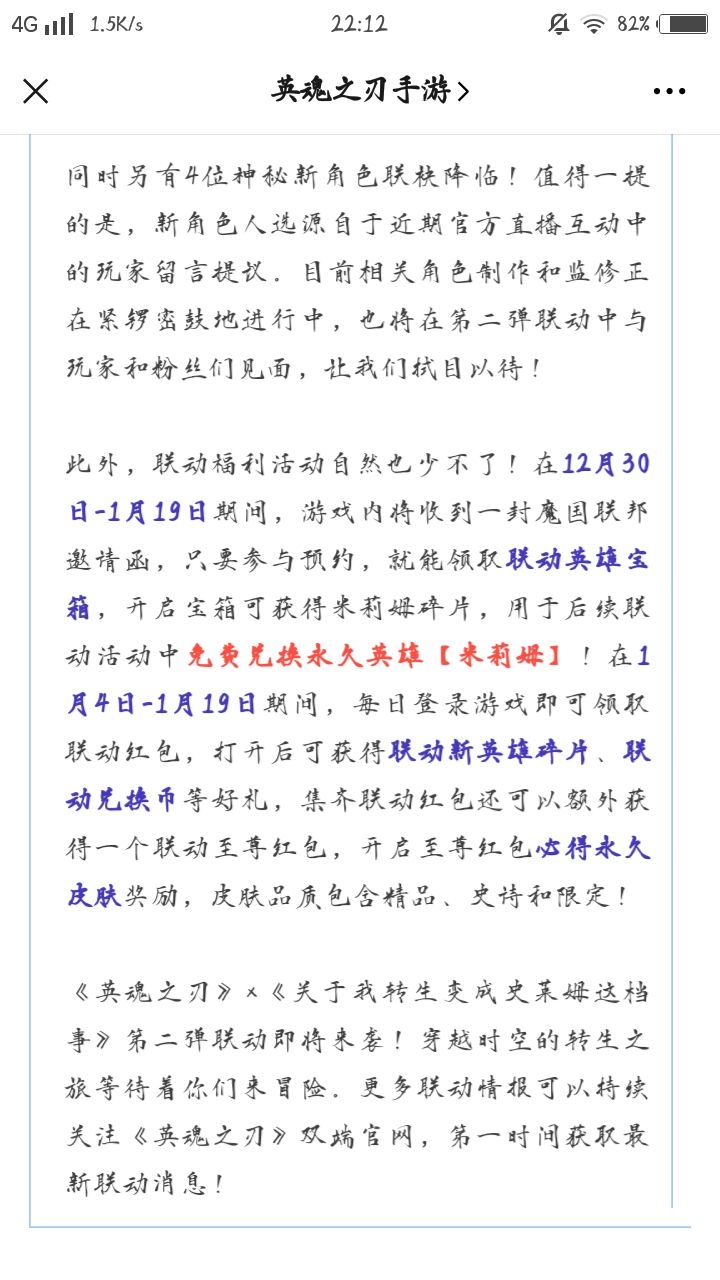 4G 1.5K/s 22:12 82%
英魂之刃手游
同时另有4位神秘新角色联袂降临！值得一提
的是，新角色人选源自于近期官方直播互动中
的玩家留言提议．目前相关角色制作和监修正
在紧锣密鼓地进行中，也将在第二弹联动中与
玩家和粉丝们见面，让我们拭目以待！
此外，联动福利活动自然也少不了！在12月30
日-1月19日期间，游戏内将收到一封魔国联邦
邀请函，只要参与预约，就能领取联动英雄宝
箱，开启宝箱可获得米莉姆碎片，用于后续联
动活动中免费兑换永久英雄【米莉姆】！在1
月4日-1月19日期间，每日登录游戏即可领取
联动红包，打开后可获得联动新英雄碎片、联
动兑换币等好礼，集齐联动红包还可以额外获
得一个联动至尊红包，开启至尊红包必得永久
皮肤奖励，皮肤品质包含精品、史诗和限定！
《英魂之刃》×《关于我转生变成史莱姆这档
事》第二弹联动即将来袭！穿越时空的转生之
旅等待着你们来冒险．更多联动情报可以持续
关注《英魂之刃》双端官网，第一时间获取最
新联动消息！